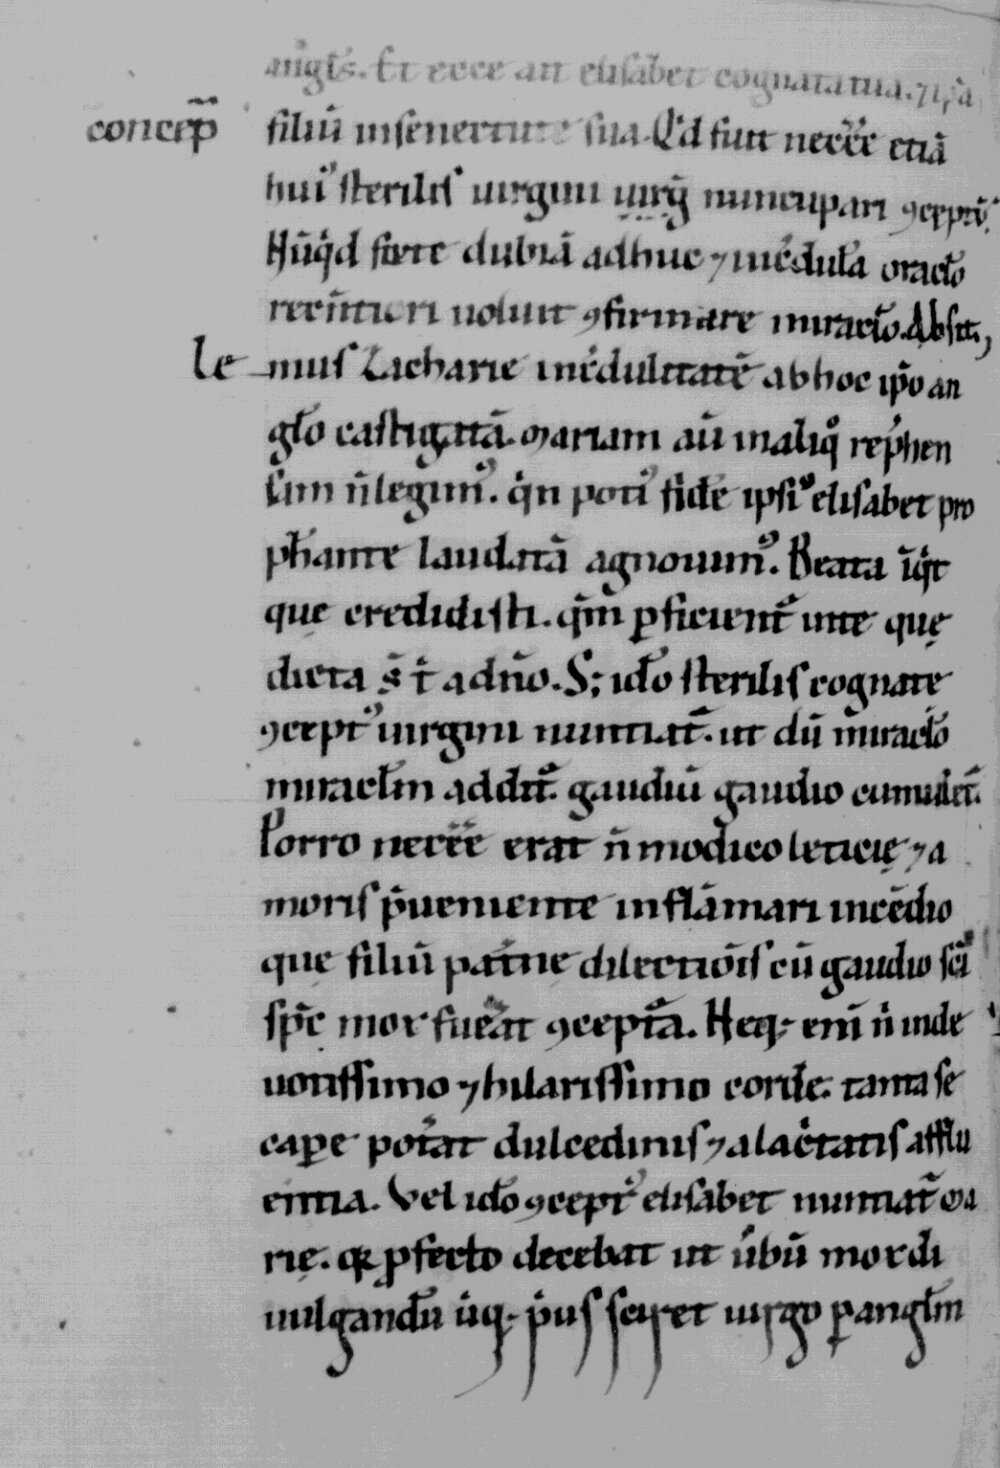 angłs. Et ecce an elisabet cognata tua. ⁊ ip̄a
concep̄
filiū in senectute sua. Qd̓ fuit necēē etiā
hui᷒ sterilis uirgini nuncupari ꝯceptū.
Nūq̓d forte dubiā adhuc ⁊ incͬdulā oracło
recn̄tiori uoluit ꝯfirmare miracło. Absit,
Le mus Zacharie incͬdulitatē ab hoc ip̄o an
gło castigatā. Mariam aū in aliq̊ rep̓hen
sam n̄ legim᷒. q̓n poti᷒ fidē ipsi᷒ elisabet pro
ph̄ante laudatā agnouim᷒. Beata īq̓t
que credidisti. qm̄ ꝑficient᷑ in te quę
dicta s̄t t̓ a dn̄o. S; iđo sterilis cognate
ꝯcept᷒ uirgini nuntiat᷑. ut dū miracło
miracłm addit᷑. gaudiū gaudio cumulet᷑.
Porro necēē erat n̄ modico leticię ⁊ a
moris p̄ueniente inflāmari incēdio
que filiū pat̓ne dilectiōis cū gaudio sc̄i
sp̄c mox fuerat ꝯcept̄a. Neq; eni n̓ in de
uotissimo ⁊ hilarissimo corde. tanta se
caꝑe pot̓at dulcedinis ⁊ alac̓tatis afflu
entia. Vel iđo ꝯcept᷒ elisabet nuntiat᷑ Ma
rię. qꝛ ꝓfecto decebat ut ůbū mox di
uulgandū ůq; p̓us sciret uirgo ꝑ angłm